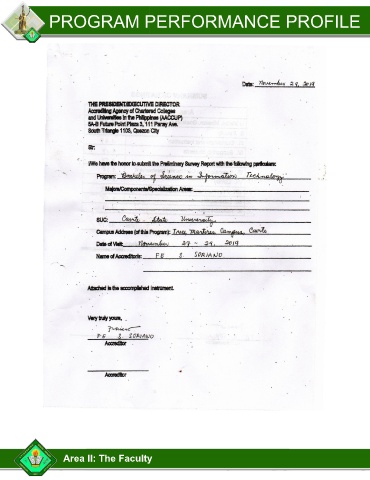 PROGRAM PERFORMANCE PROFILE
Date: November 29, 2019
THE PRESIDENT/EXECUTIVE DIRECTOR
Accrediting Agency of Chartered Colleges
and Universities in the Philippines (AACCUP)
5A-B Future Point Plaza 3, 111 Panay Ave.
South Triangle 1103, Quezon City
Sir:
I/We have the honor to submit the Preliminary Survey Report with the following particulars:
Program: Bachelor of Science in Information Technology
Majors/Components/Specialization Areas:
SUC: Cavite State University
Campus Address (of this Program): Trece Martires Campus Cavite
Date of Visit: November 27 - 29, 2019
Name of Accreditor/s: FE S. SORIANO
Attached is the accomplished instrument.
Very truly yours,
FE S. SORIANO
Accreditor
Accreditor
Area II: The Faculty